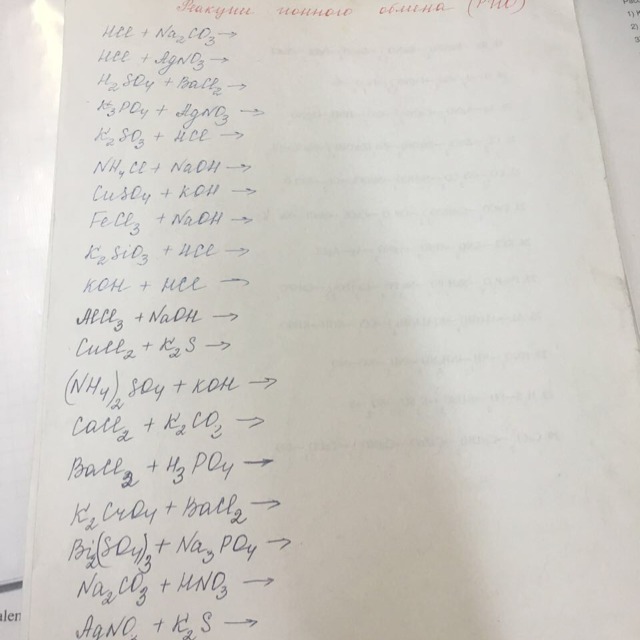 Реакции ионного обмена (РИО)
HCl + Na₂CO₃ →
HCl + AgNO₃ →
H₂SO₄ + BaCl₂ →
K₃PO₄ + AgNO₃ →
K₂SO₃ + HCl →
NH₄Cl + NaOH →
CuSO₄ + KOH →
FeCl₃ + NaOH →
K₂SiO₃ + HCl →
KOH + HCl →
AlCl₃ + NaOH →
CuCl₂ + K₂S →
(NH₄)₂SO₄ + KOH →
CaCl₂ + K₂CO₃ →
BaCl₂ + H₃PO₄ →
K₂CrO₄ + BaCl₂ →
Bi₂(SO₄)₃ + Na₃PO₄ →
Na₂CO₃ + HNO₃ →
AgNO₃ + K₂S →